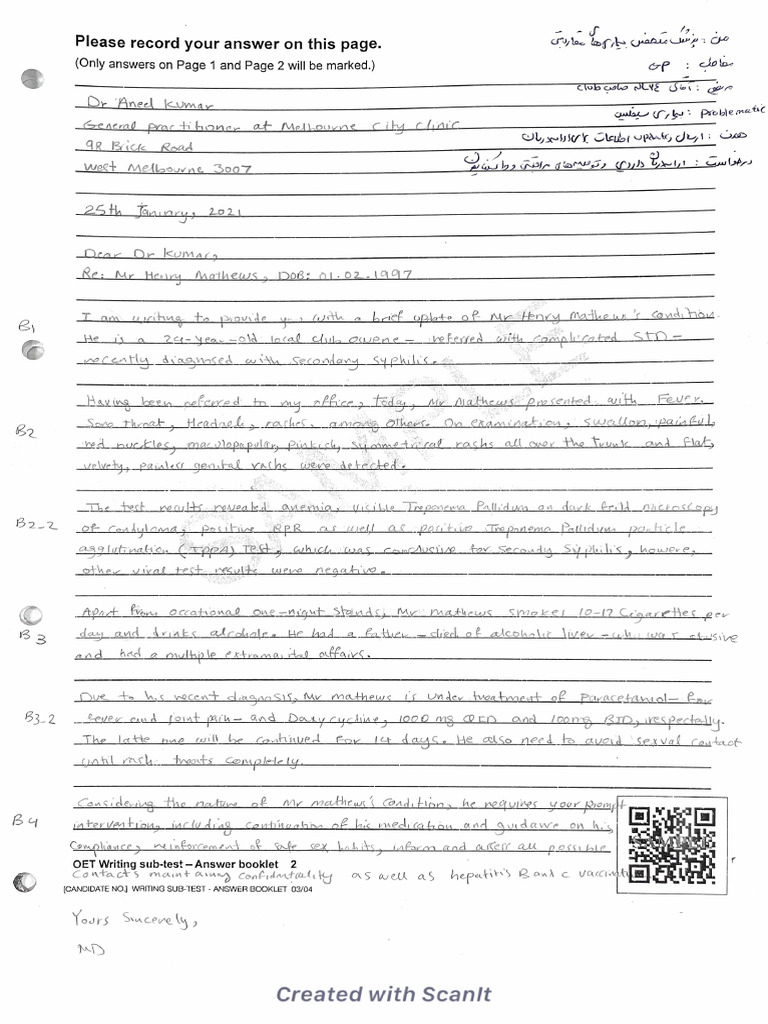 Please record your answer on this page.
(Only answers on Page 1 and Page 2 will be marked.)
من: پزشک متخصص بیماری‌های مقاربتی
مخاطب: GP
مریض: آقای ۲۴ ساله صاحب club
problematic: بیماری سیفلیس
هدف: ارسال اطلاعات برای
درخواست:
Dr Aneel Kumar
General practitioner at Melbourne City Clinic
98 Brick Road
West Melbourne 3007
25th Janirary, 2021
Dear Dr Kumar,
Re: Mr Henry Mathews, DOB: 01.02.1997
B1
I am writing to provide you with a brief update of Mr Henry Mathews's condition.
He is a 24-year-old local club owene - referred with complicated STD -
recently diagnosed with secondary syphilis.
B2
Having been referred to my office, today, Mr Mathews presented with Fever,
Sore throat, Headach, rashes, among others. On examination, swallon, painful,
red nuckles, maculopapular, pinkish, symmetrical rashs all over the trunk and flat,
velvety, painless genital rashs were detected.
B2_2
The test results revealed anemia, visible Treponema Pallidum on dark feild microscopy
of condyloma, positive RPR as well as positive Treponema Pallidum particle
agglutination (TPPA) Test, which was conclusive for Secondy Syphilis, howere,
other viral test results were negative.
B3
Apart from occational one-night stands, Mr mathews smokes 10-12 Cigarettes per
day and drinks alcohole. He had a father - died of alcoholic liver - who was abusive
and had a multiple extramarital affairs.
B3_2
Due to his recent diagnosis, Mr mathews is under treatment of Paracetamol - for
fever and joint pain - and Doxycycline, 1000 mg QID and 100mg BID, respectally.
The latte one will be continued for 14 days. He also need to avoid sexual contact
until rash treats completely.
B4
Considering the nature of Mr mathews's condition, he requires your prompt
intervention, including continuation of his medication and guidance on his
Compliance, reinforcement of safe sex habits, inform and assess all possible
OET Writing sub-test – Answer booklet 2
Contacts maintaing confidentiality as well as hepatitis B and C vaccinati
[CANDIDATE NO.] WRITING SUB-TEST - ANSWER BOOKLET 03/04
Yours Sincerely,
MD
SAMPLE
SAMPLE
Created with ScanIt